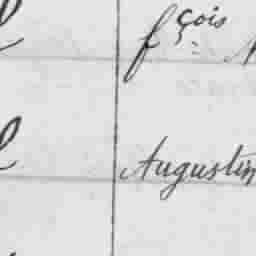 fçois
Augustin